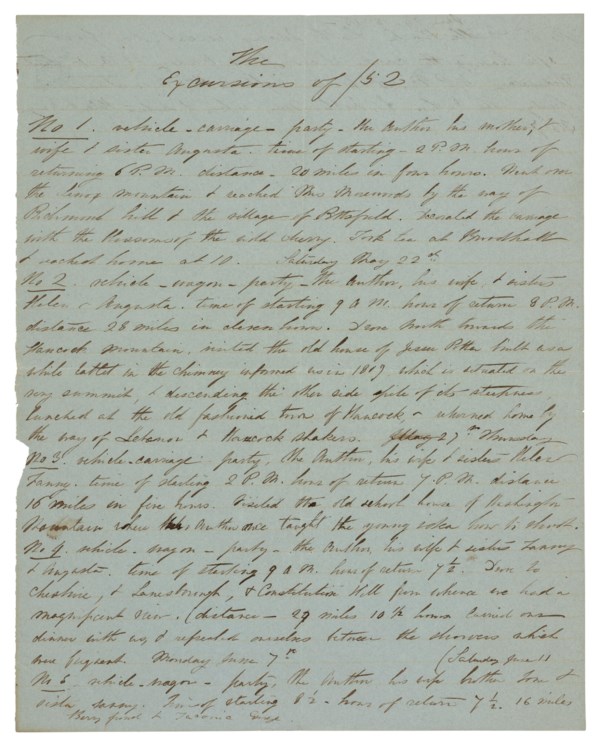 The
Excursions of /52
No 1. vehicle - carriage - party - the Author, his mother, &
wife & sister Augusta. time of starting - 2 P.M. hour of
returning 6 P.M. distance - 20 miles in four hours. Went over
the Lenox mountain & reached by the way of
Richmond hill & the village of Pittsfield. Decorated the carriage
with the blossoms of the wild cherry. Took tea at Broadhall
& reached home at 10. Saturday May 22nd
No 2. vehicle - wagon - party - the Author, his wife, & sisters
Helen & Augusta. time of starting 9 A.M. hour of return 8 P.M.
distance 28 miles in eleven hours. Drove North towards the
Hancock Mountain. visited the old house of Potter built as a
white tablet in the chimney informed us in 1819, which is situated on the
very summit, & descending the other side spite of its steepness,
lunched at the old fashioned town of Hancock & returned home by
the way of Lebanon & Hancock Shakers. May 27th Thursday
No 3. vehicle - carriage party, the Author, his wife & sisters Helen
Fanny. time of starting 2 P.M. hour of return 7 P.M. distance
16 miles in five hours. Visited the old school house of Washington
Mountain where the Author once taught the young idea how to shoot.
No 4. vehicle - wagon - party - the Author, his wife & sisters Fanny
& Augusta. time of starting 9 A.M. hour of return 7½. Drove to
Cheshire, & Lanesborough, & Constitution Hill from whence we had a
magnificent view. (distance - 29 miles 10½ hours Carried our
dinner with us, & refreshed ourselves between the showers which
were frequent. Monday June 7th
(Saturday June 11
No 5. vehicle - wagon - party, the Author his wife brother Tom &
sister Fanny. Time of starting 8½ - hour of return 7½. 16 miles
Berry pond &